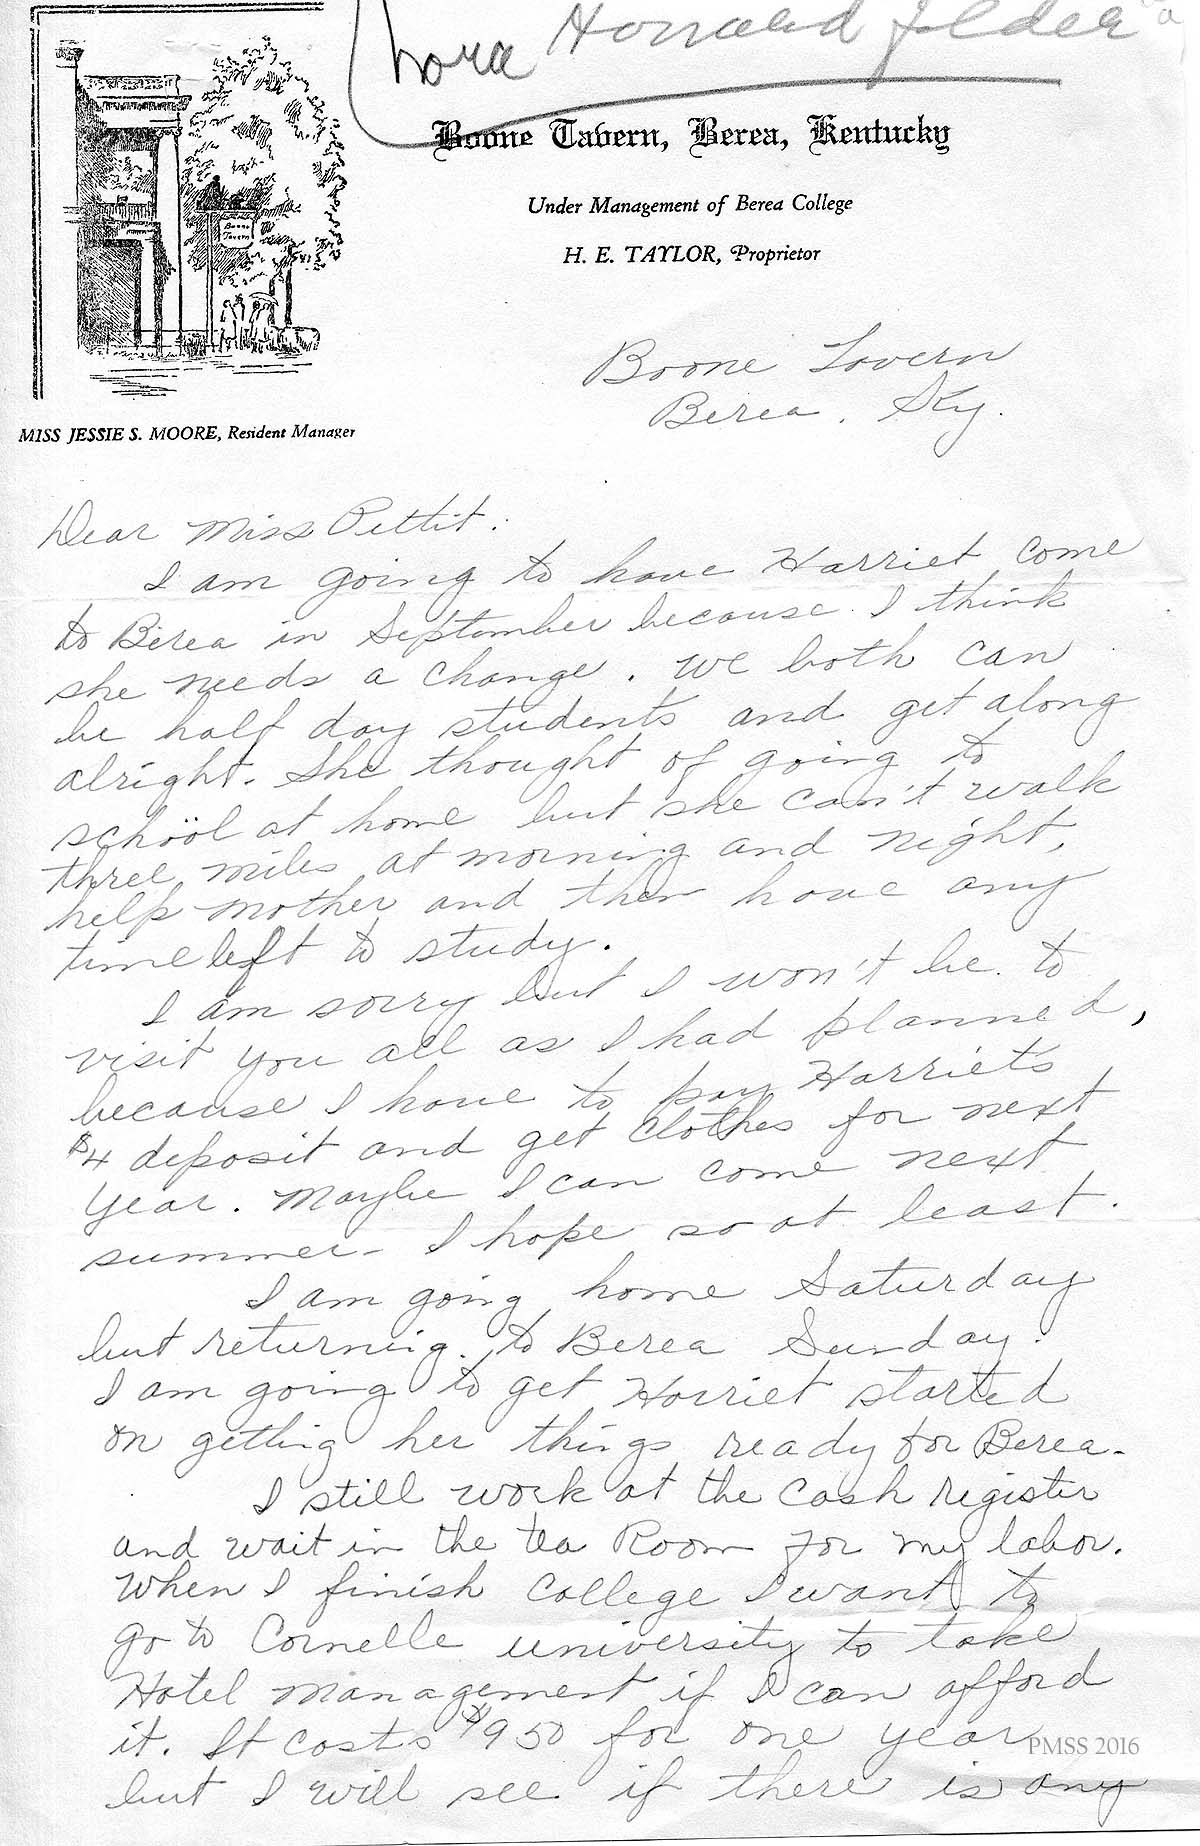 Howard folder
Boone Tavern
Boone Tavern, Berea, Kentucky
Under Management of Berea College
H. E. TAYLOR, Proprietor
MISS JESSIE S. MOORE, Resident Manager
Boone Tavern
Berea, Ky.
Dear Miss Pettit:
I am going to have Harriet come
to Berea in September because I think
she needs a change. We both can
be half day students and get along
alright. She thought of going to
school at home but she can't walk
three miles at morning and night,
help mother and then have any
time left to study.
I am sorry but I won't be to
visit you all as I had planned,
because I have to pay Harriet's
$4 deposit and get clothes for next
year. Maybe I can come next
summer - I hope so at least.
I am going home Saturday
but returning to Berea Sunday.
I am going to get Harriet started
on getting her things ready for Berea.
I still work at the cash register
and wait in the tea Room for my labor.
When I finish college I want to
go to Cornelle university to take
Hotel management if I can afford
it. It costs $950 for one year
but I will see if there is any
PMSS 2016